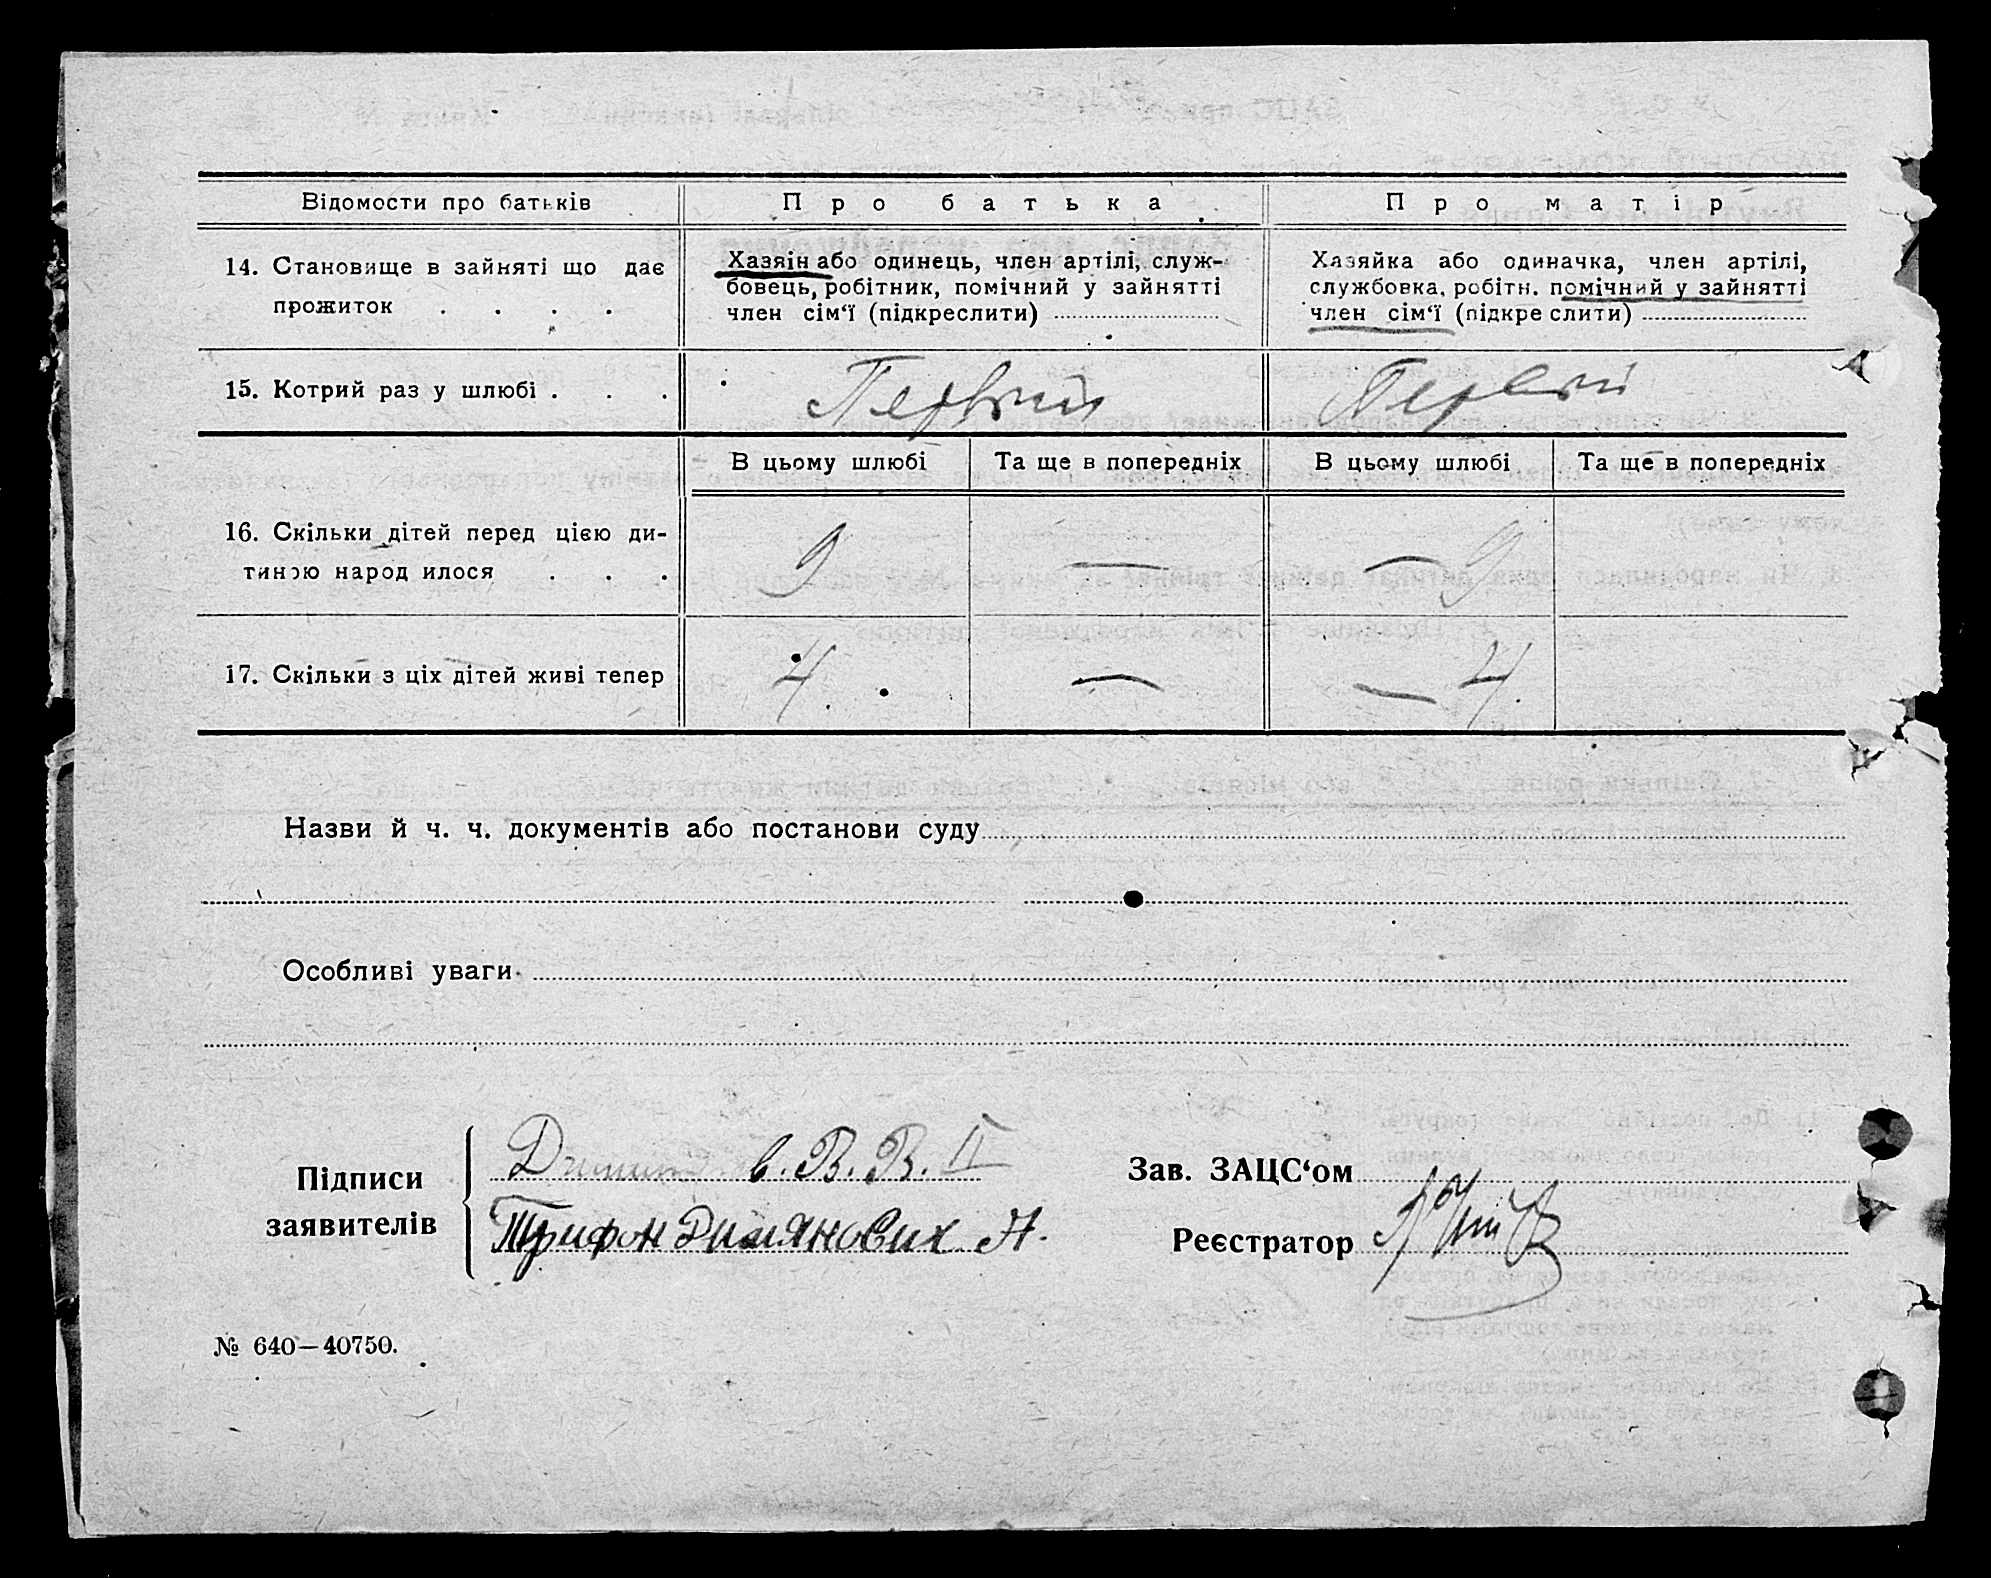 Відомости про батьків
Про батька
Про матір
14. Становище в зайняті що дає
прожиток . . . .
Хазяін або одинець, член артілі, служ-
бовець, робітник, помічний у зайнятті
член сім‘ї (підкреслити)
Хазяйка або одиначка, член артілі,
службовка, робітн. помічний у зайнятті
член сім‘ї (підкреслити)
15. Котрий раз у шлюбі . . .
Первый
Первый
В цьому шлюбі
Та ще в попередніх
В цьому шлюбі
Та ще в попередніх
16. Скільки дітей перед цією ди-
тиною народилося . . .
9
—
— 9
17. Скільки з ціх дітей живі тепер
4.
—
— 4.
Назви й ч. ч. документів або постанови суду
Особливі уваги
Підписи
заявителів
в. В. В. II
Трифон Димянович Н.
Зав. ЗАЦС‘ом
Реєстратор
№ 640—40750.